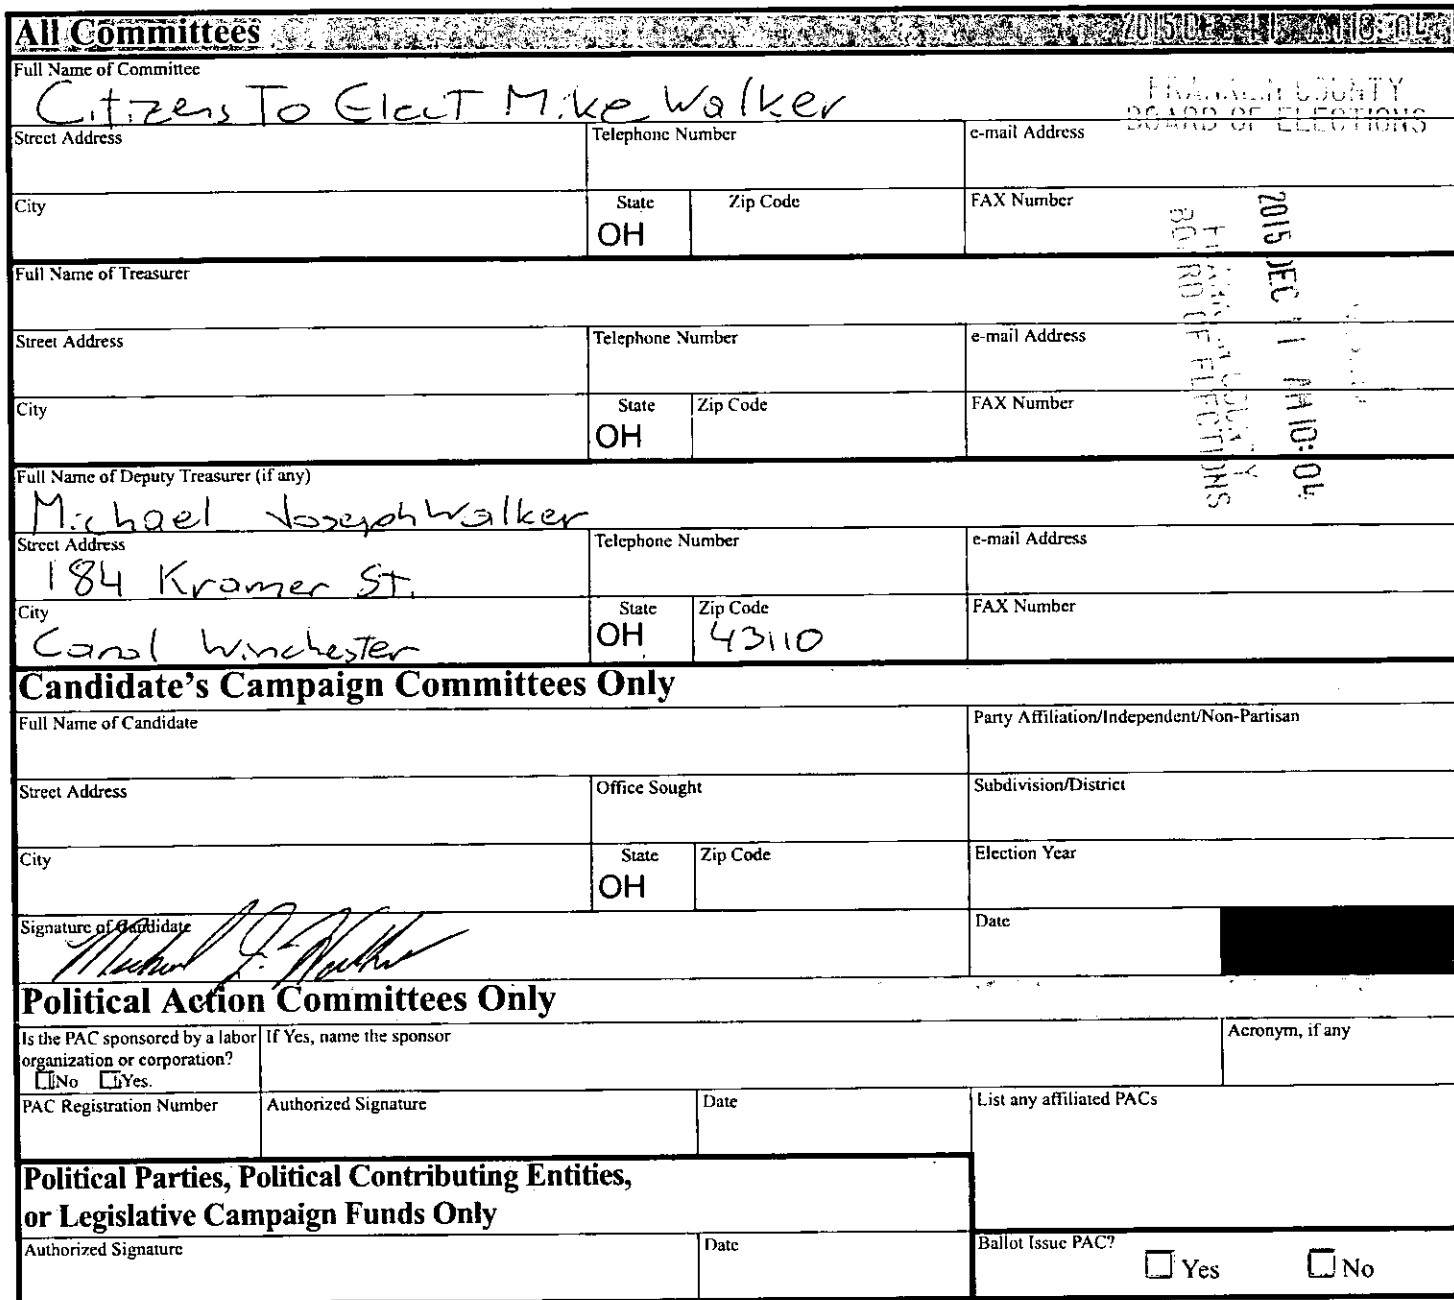 All Committees
Full Name of Committee
Citizens To Elect Mike Walker
FRANKLIN COUNTY
BOARD OF ELECTIONS
Street Address Telephone Number e-mail Address
City State Zip Code FAX Number
OH
2015 DEC 11 AM 10:04
FRANKLIN COUNTY
BOARD OF ELECTIONS
Full Name of Treasurer
Street Address Telephone Number e-mail Address
City State Zip Code FAX Number
OH
Full Name of Deputy Treasurer (if any)
Michael Joseph Walker
Street Address Telephone Number e-mail Address
184 Kramer St.
City State Zip Code FAX Number
Canal Winchester OH 43110
Candidate's Campaign Committees Only
Full Name of Candidate Party Affiliation/Independent/Non-Partisan
Street Address Office Sought Subdivision/District
City State Zip Code Election Year
OH
Signature of Candidate Date
Michael J. Walker
Political Action Committees Only
Is the PAC sponsored by a labor If Yes, name the sponsor Acronym, if any
organization or corporation?
No Yes.
PAC Registration Number Authorized Signature Date List any affiliated PACs
Political Parties, Political Contributing Entities,
or Legislative Campaign Funds Only
Authorized Signature Date Ballot Issue PAC?
Yes No